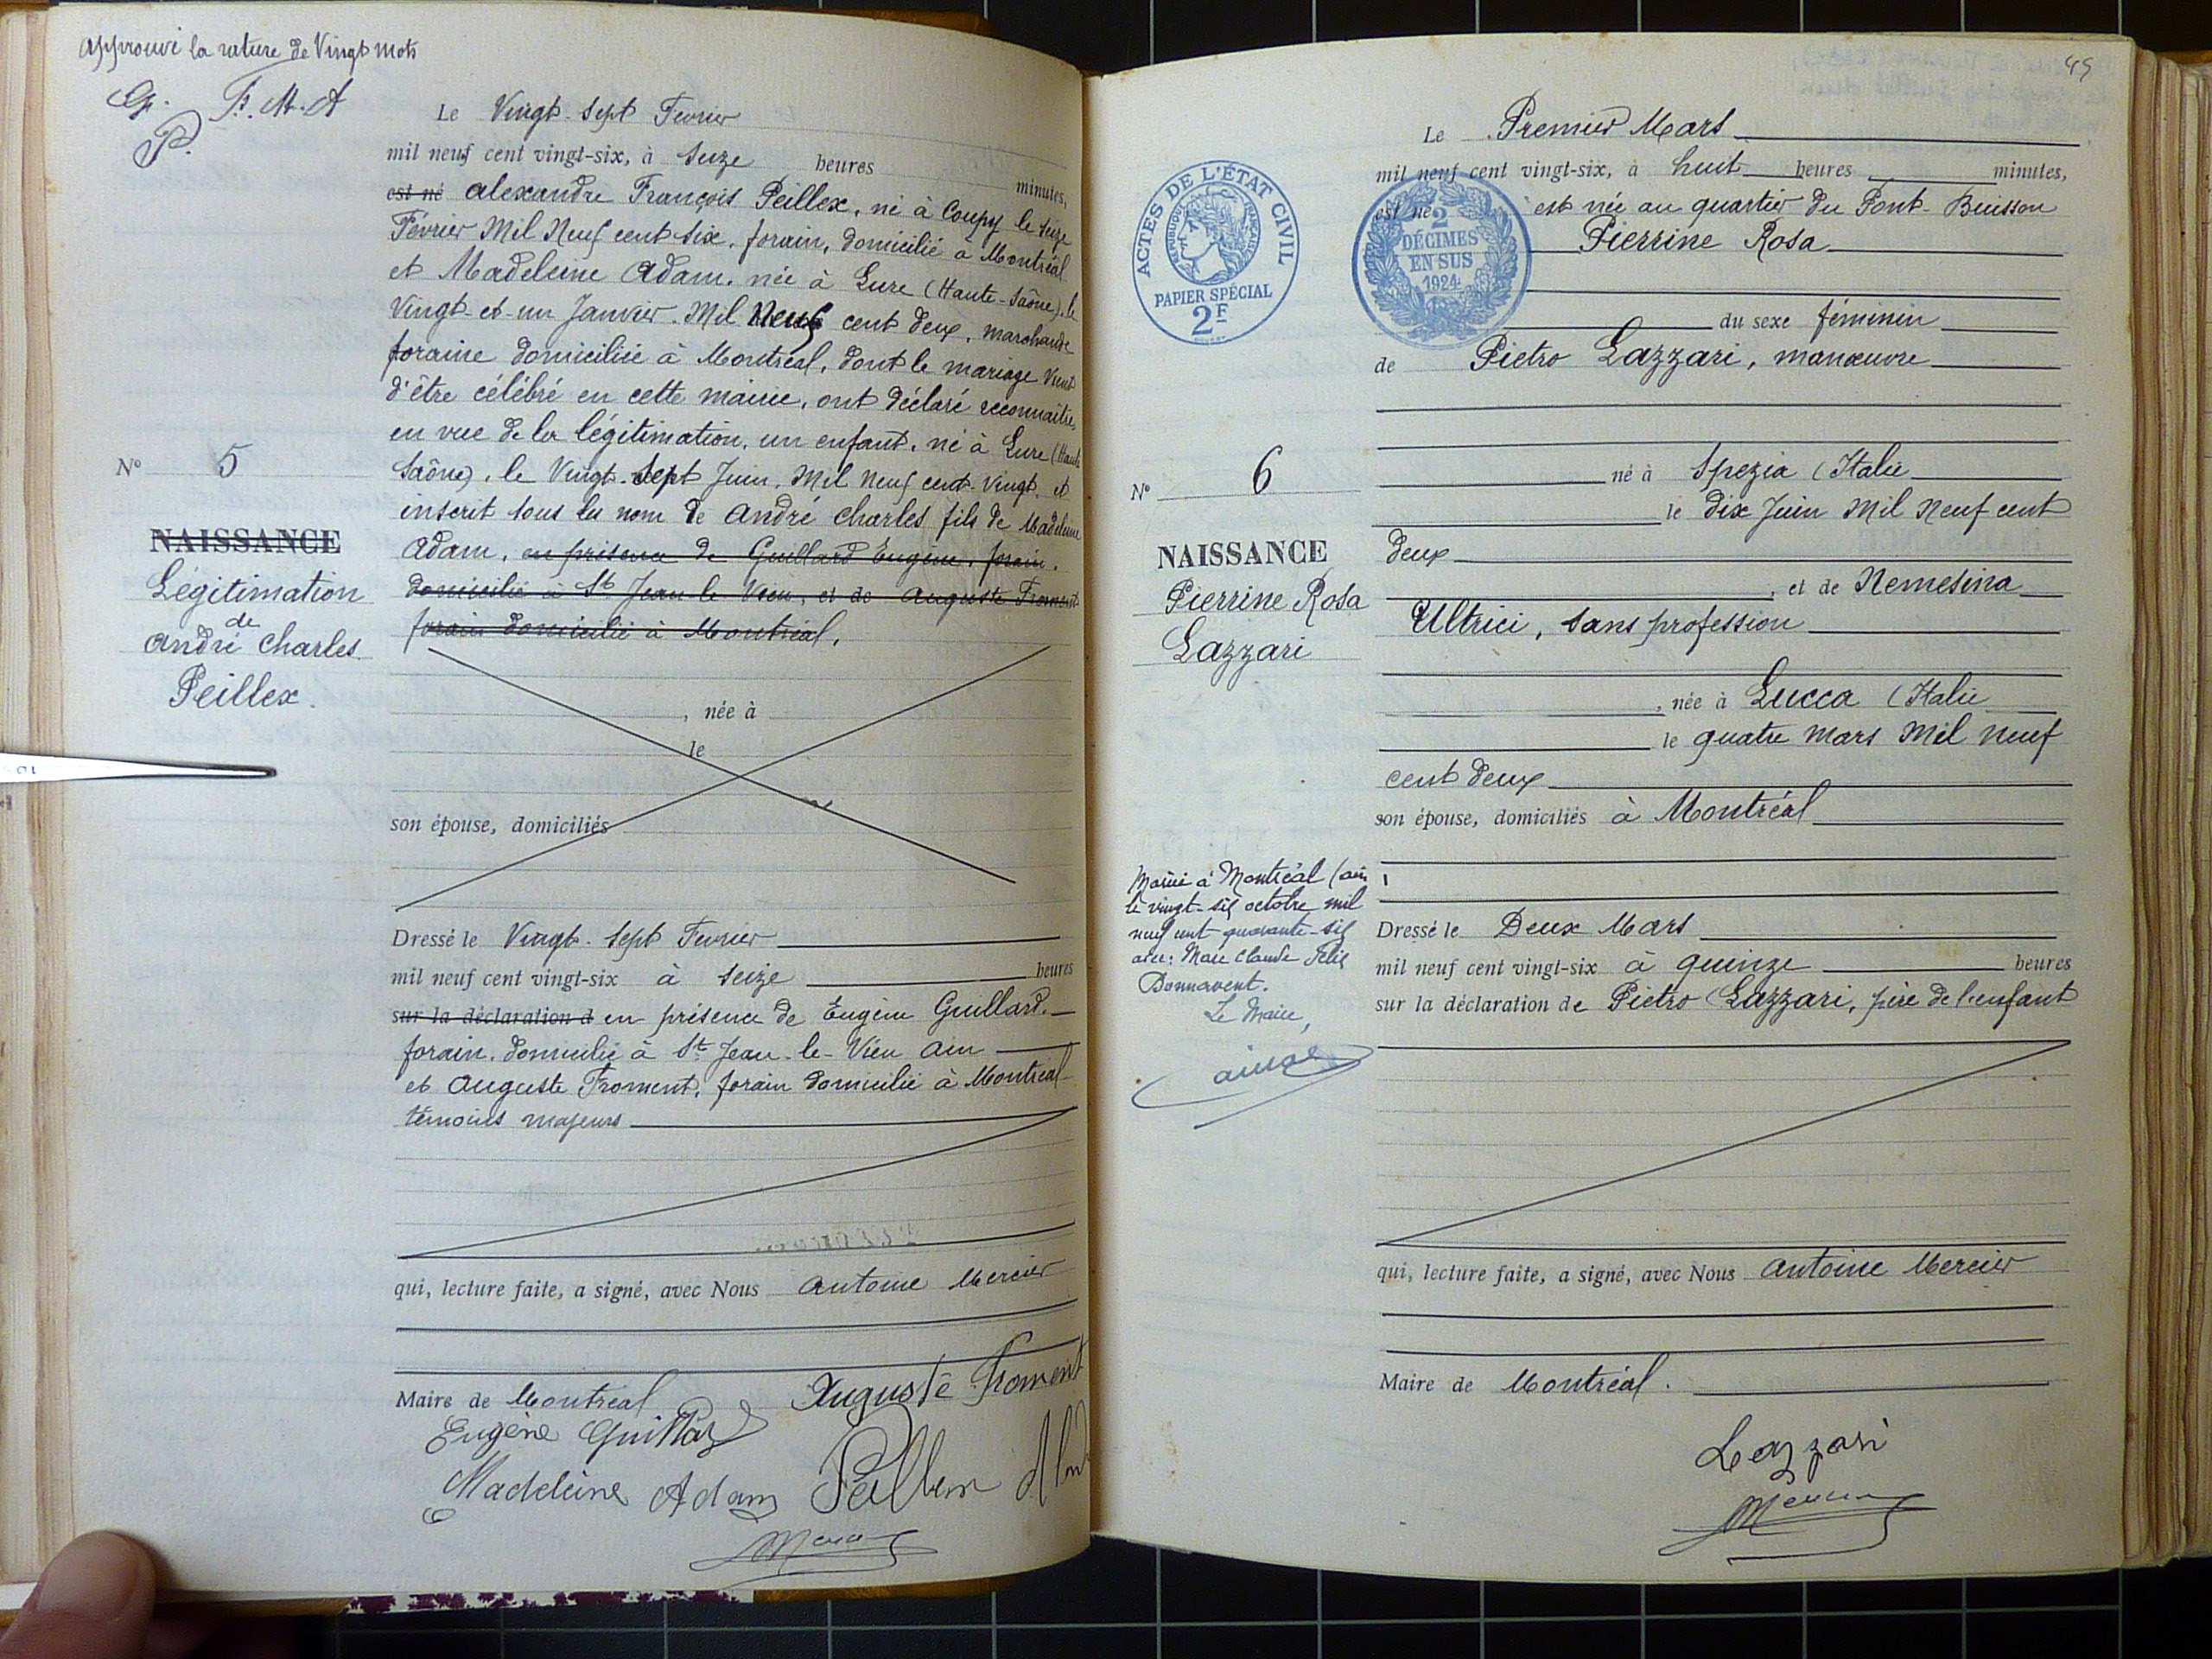 approuvé la rature de Vingt mots
G. F. M. A
P.
Le Vingt-Sept Fevrier
mil neuf cent vingt-six, à Seize heures minutes,
est né alexandre François Peillex, né à Coupy le Seize
Février Mil Neuf cent six, forain, domicilié à Montréal
et Madeleine Adam, née à Lure (Haute-Saône), le
Vingt-et-un Janvier Mil Neuf cent deux, marchande
foraine domiciliée à Montréal, dont le mariage vient
d'être célébré en cette mairie, ont déclaré reconnaitre,
en vue de la légitimation, un enfant, né à Lure (Haute
Saône), le Vingt-Sept Juin, Mil neuf cent-Vingt, et
inscrit sous les nom de André Charles fils de Madeleine
Adam, en présence de Guillard Eugène, forain,
domicilié à St Jean le Vieu, et de Auguste Froment
forain domicilié à Montréal,
N° 5
NAISSANCE
Légitimation
de
André Charles
Peillex.
, née à
le
son épouse, domiciliés
Dressé le Vingt-Sept Fevrier
mil neuf cent vingt-six à Seize heures
sur la déclaration d en présence de Eugène Guillard.
forain, domicilié à St Jean-le-Vieu Ain
et Auguste Froment, forain domicilié à Montréal
témoins majeurs
qui, lecture faite, a signé, avec Nous Antoine Mercier
Maire de Montréal
Auguste Froment
Eugène Guillard
Madeleine Adam
49
Le Premier Mars
mil neuf cent vingt-six, à huit heures minutes,
est né est née au quartier du Pont-Buisson
Pierrine Rosa
du sexe féminin
de Pietro Lazzari, manœuvre
né à Spezia (Italie
le dix Juin Mil Neuf cent
deux
, et de Nemesina
Ultrici, sans profession
, née à Lucca (Italie
le quatre mars Mil neuf
cent deux
son épouse, domiciliés à Montréal
ACTES DE L'ÉTAT CIVIL
RÉPUBLIQUE FRANÇAISE
PAPIER SPÉCIAL
2F
2
DÉCIMES
EN SUS
1924
N° 6
NAISSANCE
Pierrine Rosa
Lazzari
Mariée à Montréal (ain)
le vingt-six octobre mil
neuf cent quarante-six
avec: Marc Claude Félix
Bonnavent.
Le Maire,
Dressé le Deux Mars
mil neuf cent vingt-six à quinze heures
sur la déclaration de Pietro Lazzari, père de l'enfant
qui, lecture faite, a signé, avec Nous Antoine Mercier
Maire de Montréal.
Lazzari
Mercier